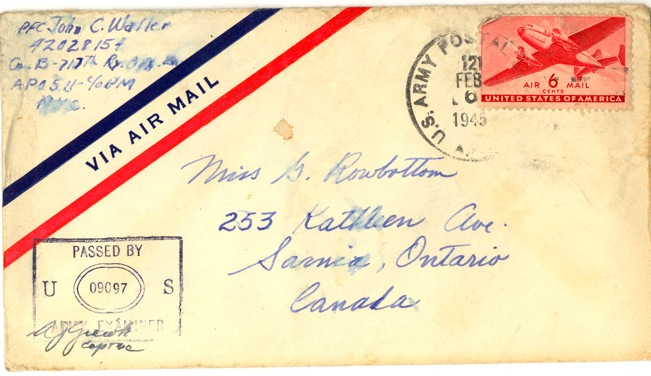 PFC John C. Waller
42028154
Co. B-717th Ry.
APO 511-℅ PM
N.Y.C.
VIA AIR MAIL
U.S. ARMY POSTAL
FEB
6
1945
AIR 6 MAIL
CENTS
UNITED STATES OF AMERICA
Miss G. Rowbottom
253 Kathleen Ave.
Sarnia, Ontario
Canada
PASSED BY
U 09097 S
ARMY EXAMINER